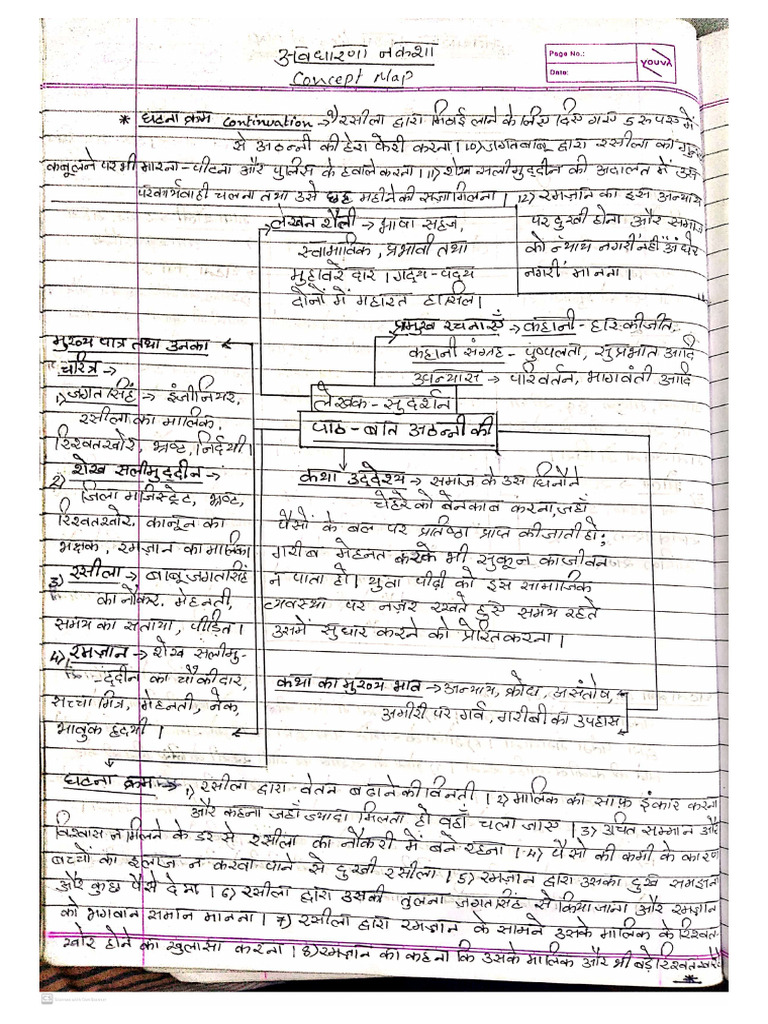 अवधारणा नकशा
Concept Map
Page No.:
Date:
YOUVA
* घटना क्रम continuation → 9) रसीला द्वारा मिठाई लाने के लिए दिए गए 5 रुपए में
से अठन्नी की हेरा फेरी करना। 10) जगतबाबू द्वारा रसीला को गुनाह
कबूलने पर भी मारना-पीटना और पुलिस के हवाले करना। 11) शेख सलीमुद्दीन की अदालत में उस
पर कार्यवाही चलना तथा उसे छह महीने की सज़ा मिलना। 12) रमज़ान का इस अन्याय
पर दुखी होना और समाज
को न्याय नगरी नहीं "अंधेर
नगरी" मानना।
लेखन शैली → भाषा सहज,
स्वाभाविक, प्रभावी तथा
मुहावरेदार। गद्य-पद्य
दोनों में महारत हासिल।
प्रमुख रचनाएँ → कहानी - हार की जीत,
कहानी संग्रह - पुष्पलता, सुप्रभात आदि
उपन्यास → परिवर्तन, भागवंती आदि
लेखक - सुदर्शन
पाठ - बात अठन्नी की
मुख्य पात्र तथा उनका
चरित्र →
1) जगत सिंह → इंजीनियर,
रसीला का मालिक,
रिश्वतखोर, भ्रष्ट, निर्दयी।
2) शेख सलीमुद्दीन →
जिला मजिस्ट्रेट, भ्रष्ट,
रिश्वतखोर, कानून का
भक्षक, रमज़ान का मालिक।
3) रसीला → बाबू जगतसिंह
का नौकर, मेहनती,
समय का सताया, पीड़ित।
4) रमज़ान → शेख सलीमु-
द्दीन का चौकीदार,
सच्चा मित्र, मेहनती, नेक,
भावुक हृदयी।
कथा उद्देश्य → समाज के उस घिनौने
चेहरे को बेनकाब करना, जहाँ
पैसों के बल पर प्रतिष्ठा प्राप्त की जाती हो;
गरीब मेहनत करके भी सुकून का जीवन
न पाता हो। युवा पीढ़ी को इस सामाजिक
व्यवस्था पर नज़र रखते हुए समय रहते
उसमें सुधार करने को प्रेरित करना।
कथा का मुख्य भाव → अन्याय, क्रोध, असंतोष,
अमीरी पर गर्व, गरीबी का उपहास
घटना क्रम → 1) रसीला द्वारा वेतन बढाने की विनती। 2) मालिक का साफ़ इंकार करना
और कहना जहाँ ज्यादा मिलता हो वहाँ चला जाए। 3) उचित सम्मान और
विश्वास न मिलने के डर से रसीला का नौकरी में बने रहना। 4) पैसों की कमी के कारण
बच्चों का इलाज न करवा पाने से दुखी रसीला। 5) रमज़ान द्वारा उसका दुख समझना
और कुछ पैसे देना। 6) रसीला द्वारा उसकी तुलना जगतसिंह से किया जाना और रमज़ान
को भगवान समान मानना। 7) रसीला द्वारा रमज़ान के सामने उसके मालिक के रिश्वत-
खोर होने का खुलासा करना। 8) रमज़ान का कहना कि उसके मालिक और भी बड़े रिश्वतखोर
*